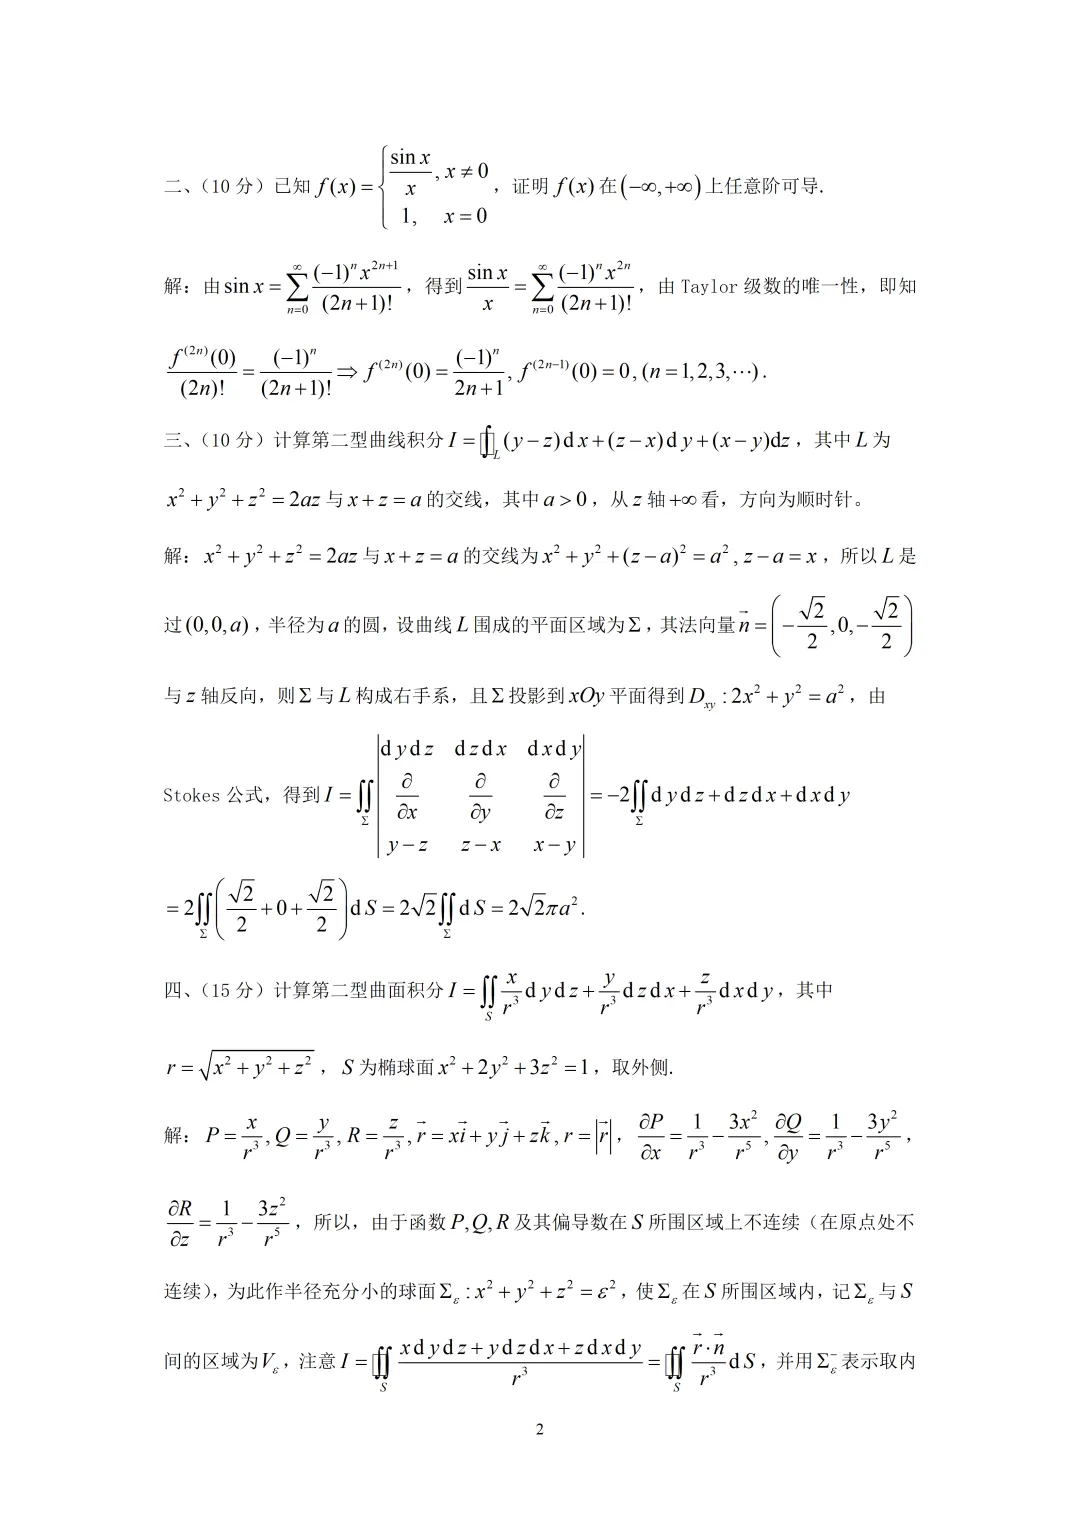 二、（10 分）已知 f(x) = { sin x / x, x ≠ 0; 1, x = 0 ，证明 f(x) 在 (−∞,+∞) 上任意阶可导.
解：由 sin x = ∑_{n=0}^{∞} (−1)^n x^{2n+1} / (2n+1)! ，得到 sin x / x = ∑_{n=0}^{∞} (−1)^n x^{2n} / (2n+1)! ，由 Taylor 级数的唯一性，即知
f^{(2n)}(0) / (2n)! = (−1)^n / (2n+1)! ⇒ f^{(2n)}(0) = (−1)^n / (2n+1) , f^{(2n−1)}(0) = 0, (n = 1,2,3,⋯) .
三、（10 分）计算第二型曲线积分 I = ∮_L (y − z)dx + (z − x)dy + (x − y)dz ，其中 L 为
x² + y² + z² = 2az 与 x + z = a 的交线，其中 a > 0 ，从 z 轴 +∞ 看，方向为顺时针。
解：x² + y² + z² = 2az 与 x + z = a 的交线为 x² + y² + (z − a)² = a² , z − a = x ，所以 L 是
过 (0,0,a) ，半径为 a 的圆，设曲线 L 围成的平面区域为 Σ ，其法向量 n⃗ = (−√2/2 ,0,−√2/2)
与 z 轴反向，则 Σ 与 L 构成右手系，且 Σ 投影到 xOy 平面得到 D_{xy} : 2x² + y² = a² ，由
Stokes 公式，得到 I = ∬_Σ | dydz dzdx dxdy ; ∂/∂x ∂/∂y ∂/∂z ; y − z z − x x − y | = −2∬_Σ dydz + dzdx + dxdy
= 2∬_Σ (√2/2 + 0 + √2/2) dS = 2√2 ∬_Σ dS = 2√2πa² .
四、（15 分）计算第二型曲面积分 I = ∬_S x/r³ dydz + y/r³ dzdx + z/r³ dxdy ，其中
r = √(x² + y² + z²) ， S 为椭球面 x² + 2y² + 3z² = 1 ，取外侧.
解：P = x/r³ , Q = y/r³ , R = z/r³ , r⃗ = xi⃗ + yj⃗ + zk⃗ , r = |r⃗| ， ∂P/∂x = 1/r³ − 3x²/r⁵ , ∂Q/∂y = 1/r³ − 3y²/r⁵ ，
∂R/∂z = 1/r³ − 3z²/r⁵ ，所以，由于函数 P,Q,R 及其偏导数在 S 所围区域上不连续（在原点处不
连续），为此作半径充分小的球面 Σ_ε : x² + y² + z² = ε² ，使 Σ_ε 在 S 所围区域内，记 Σ_ε 与 S
间的区域为 V_ε ，注意 I = ∯_S (xdydz + ydzdx + zdxdy) / r³ = ∯_S (r⃗ · n⃗) / r³ dS ，并用 Σ_ε⁻ 表示取内
2